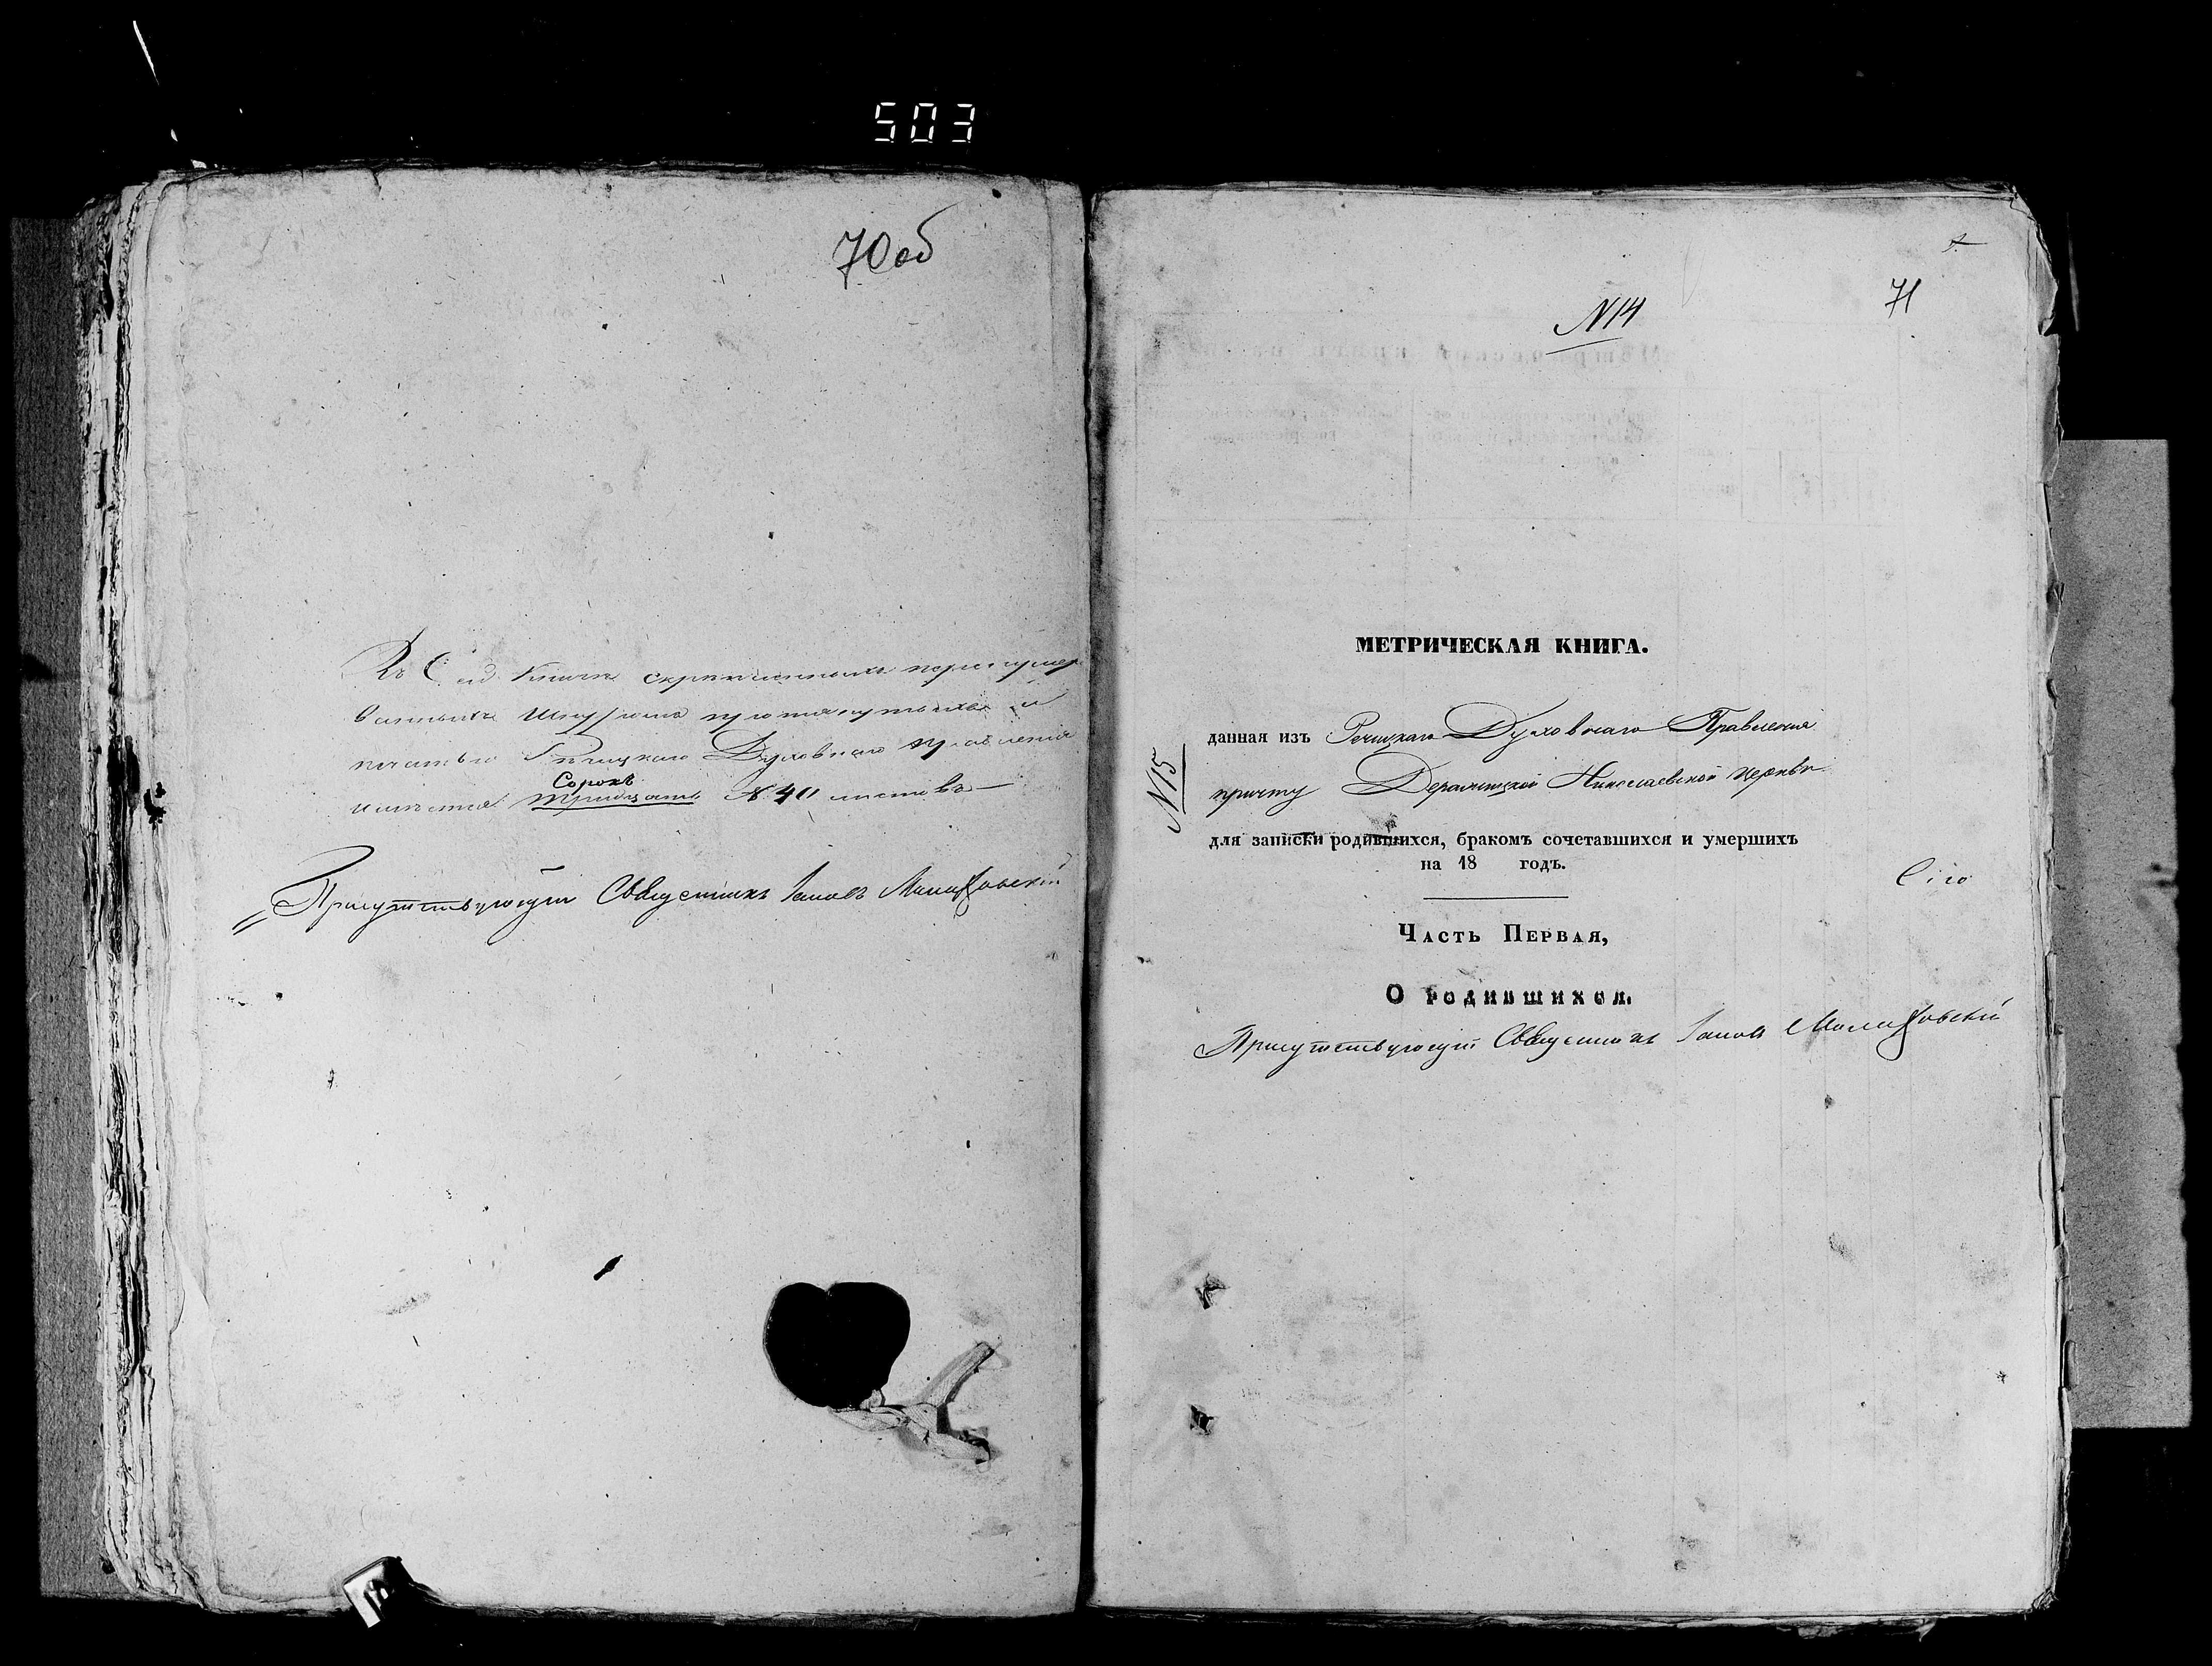 503
70об
Въ Сей Книгѣ скрѣпленныхъ перенумеро
ванныхъ шнуромъ протянутыхъ и
печатью Рѣчицкаго Духовнаго правленія
Сорокъ
тридцать № 40 листовъ
Присутствующій Священникъ Іаковъ
71
N14
МЕТРИЧЕСКАЯ КНИГА.
данная изъ Речицкаго Духовнаго Правленія
причту Николаевской церкви
N15
для записки родившихся, бракомъ сочетавшихся и умершихъ
на 18 годъ.
Часть Первая,
О родившихся.
Присутствующій Священникъ Іаковъ